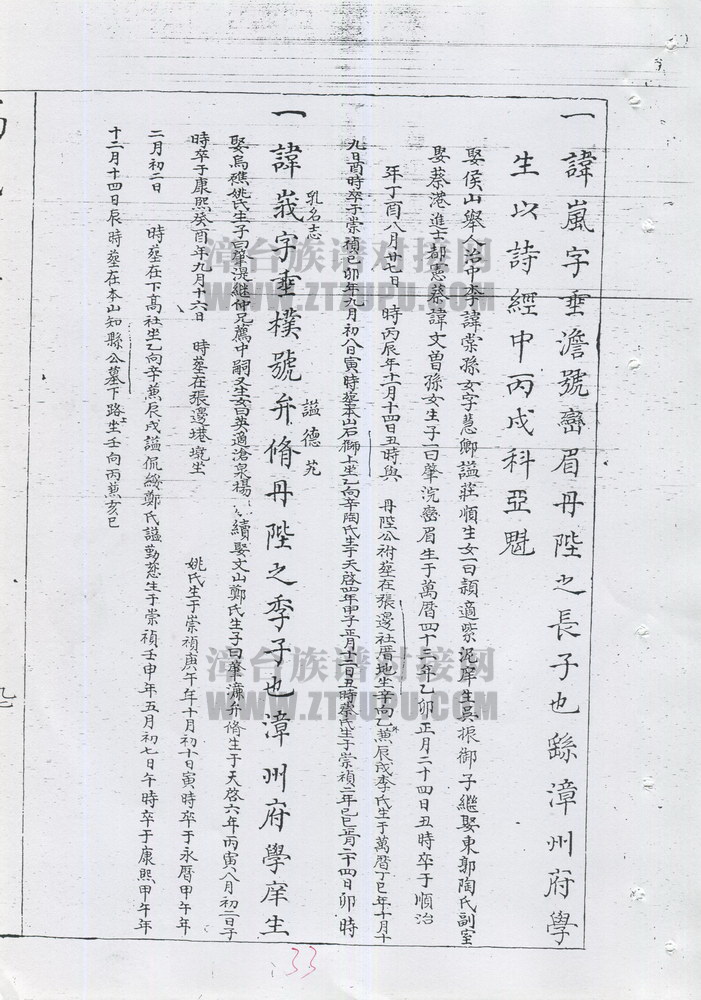 一諱嵐字垂澹號巒眉丹陛之長子也繇漳州府學
生以詩經中丙戌科亞魁
娶侯山舉人治中李諱棠孫女字慧卿謚莊順生女一曰頴適紫泥庠生吳振御子繼娶東郭陶氏副室
娶蔡港進士都憲蔡諱文曾孫女生子一曰肇浣巒眉生于萬曆四十三年乙卯正月二十四日丑時卒于順治
年丁酉八月廿七日 時丙辰年十一月十四日丑時與 丹陛公祔塟在張邊社厝地坐辛向乙兼辰戌李氏生于萬曆丁巳年十月十
九日酉時卒于崇禎己卯年九月初八日寅時塟本山石獅上坐乙向辛陶氏生于天啓四年甲子正月十二日丑時蔡氏生于崇禎二年己巳正月二十四日卯時
一諱峩字垂樸號弁脩丹陛之季子也漳州府學庠生
乳名志
謚德
娶烏礁姚氏生子曰肇湜繼仲兄薦中嗣又生女曰英適滄泉楊 續娶文山鄭氏生子曰肇濂弁脩生于天啓六年丙寅八月初二日子
時卒于康熙癸酉年九月十六日 時塟在張邊港墘坐 姚氏生于崇禎庚午年十月初十日寅時卒于永曆甲午年
二月初二日 時塟在下高社坐乙向辛兼辰戌謚侃綏鄭氏謚勤慈生于崇禎壬申年五月初七日午時卒于康熙甲午年
十二月十四日辰時塟在本山知縣公墓下路坐壬向丙兼亥巳
33
漳台族谱对接网
WWW.ZTZUPU.COM
漳台族谱对接网
WWW.ZTZUPU.COM